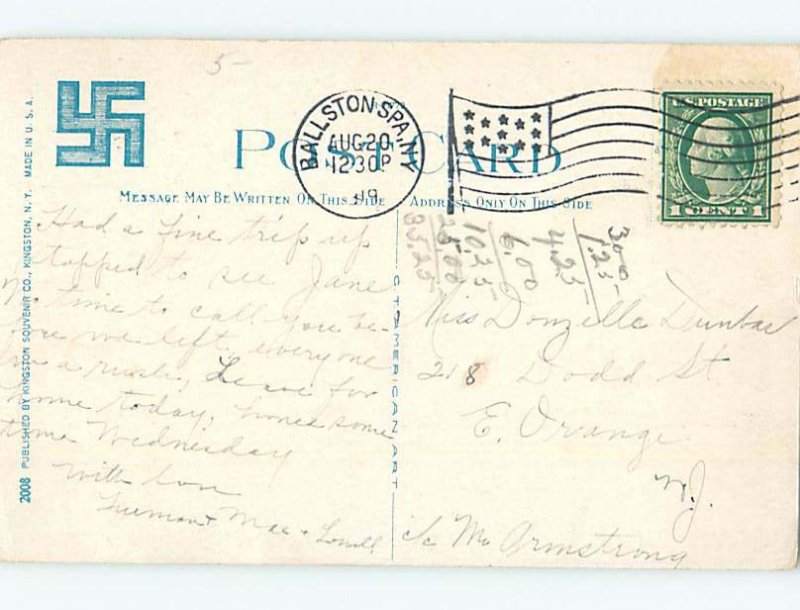 5-
POST CARD
BALLSTON SPA, NY
AUG 20
12 30 P
19
U.S. POSTAGE
1 CENT 1
MESSAGE MAY BE WRITTEN ON THIS SIDE
ADDRESS ONLY ON THIS SIDE
2008 PUBLISHED BY KINGSTON SOUVENIR CO., KINGSTON, N.Y. MADE IN U.S.A.
C.T. AMERICAN ART
Had a fine trip up
stopped to see Jane
No time to call you be-
fore we left, everyone
in a rush, Leave for
home today, home some
time Wednesday
With love
Freeman + Mae + Lowell
300
1.25
4.25
6.00
10.25
25.00
35.25
Miss Donzelle Dunbar
218 Dodd St
E. Orange
N.J.
c/o Mr Armstrong